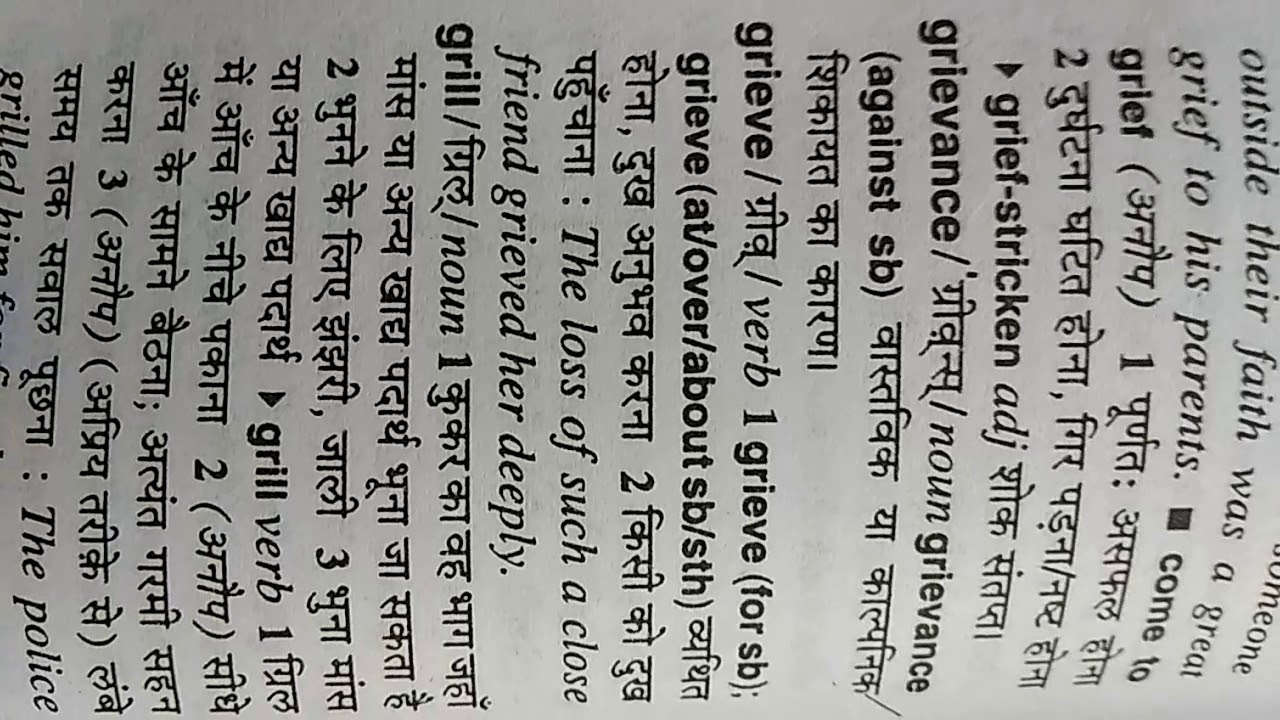 omeone
outside their faith was a great
grief to his parents. ■ come to
grief (अनौप) 1 पूर्णतः असफल होना
2 दुर्घटना घटित होना, गिर पड़ना/नष्ट होना
▶ grief-stricken adj शोक संतप्त।
grievance / 'ग्रीव़्न्स् / noun grievance
(against sb) वास्तविक या काल्पनिक/
शिकायत का कारण।
grieve / ग्रीव़् / verb 1 grieve (for sb);
grieve (at/over/about sb/sth) व्यथित
होना, दुख अनुभव करना 2 किसी को दुख
पहुँचाना : The loss of such a close
friend grieved her deeply.
grill / ग्रिल् / noun 1 कुकर का वह भाग जहाँ
मांस या अन्य खाद्य पदार्थ भूना जा सकता है
2 भुनने के लिए झंझरी, जाली 3 भुना मांस
या अन्य खाद्य पदार्थ ▶ grill verb 1 ग्रिल
में आँच के नीचे पकाना 2 (अनौप) सीधे
आँच के सामने बैठना; अत्यंत गरमी सहन
करना 3 (अनौप) (अप्रिय तरीके से) लंबे
समय तक सवाल पूछना : The police
grilled him for